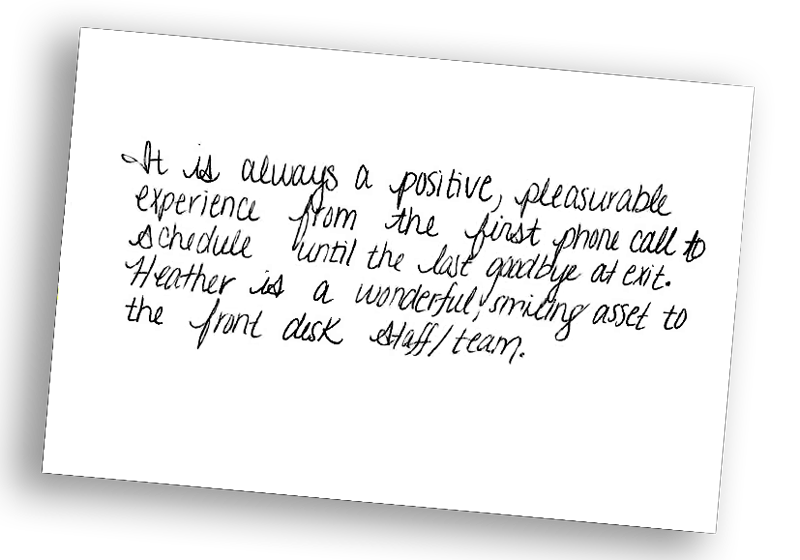 It is always a positive, pleasurable
experience from the first phone call to
schedule until the last goodbye at exit.
Heather is a wonderful, smiling asset to
the front desk staff/team.